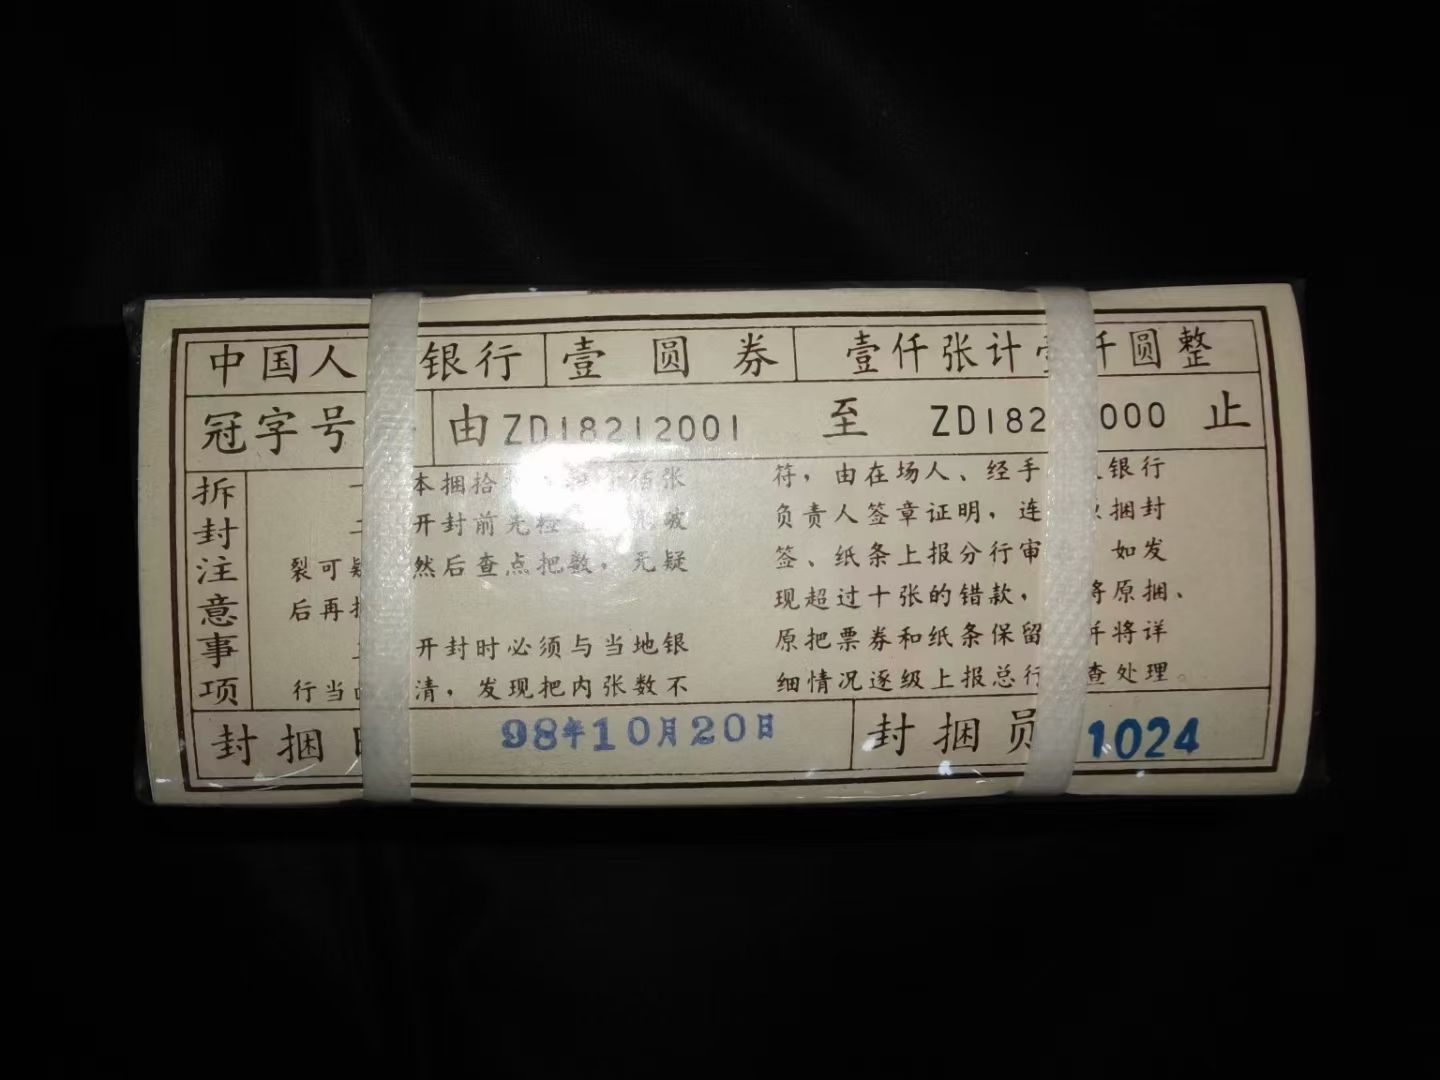 中国人 银行 壹圆券 壹仟张计 仟圆整
冠字号 由ZD18212001 至 ZD182 000 止
拆封注意事项
一 本捆拾 佰张
开封前先检查 破
裂可疑 然后查点把数，无疑
后再
开封时必须与当地银
行当 清，发现把内张数不
符，由在场人、经手 银行
负责人签章证明，连 捆封
签、纸条上报分行审 如发
现超过十张的错款， 将原捆、
原把票券和纸条保留 并将详
细情况逐级上报总行 查处理。
封捆 98年10月20日 封捆员 1024